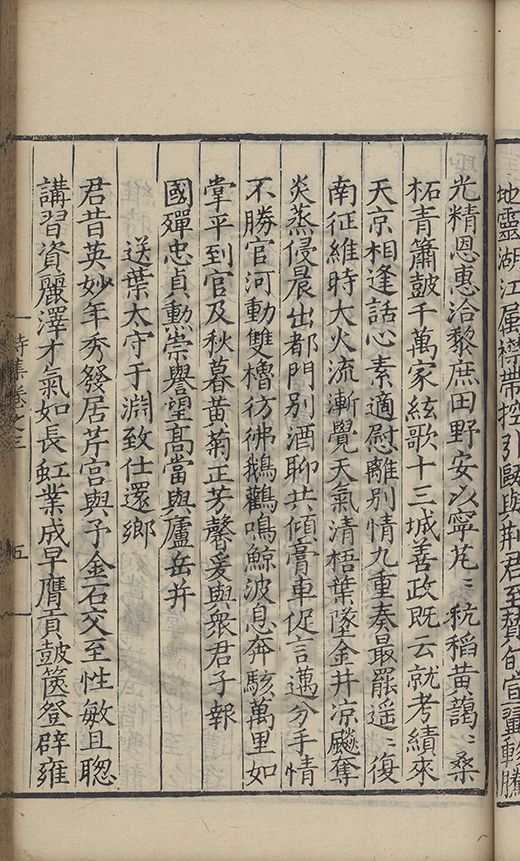 地靈湖江属襟帶控引歐與荆君至贊旬宣翼軫騰
光精恩惠洽黎庶田野安以寧芃〻秔稻黄藹〻桑
柘青簫鼓千萬家絃歌十三城善政既云就考績來
天京相逢話心素適慰離別情九重奏最罷遥〻復
南征維時大火流漸覺天氣清梧葉墜金井凉飈奪
炎蒸侵晨出都門別酒聊共傾膏車促言邁分手情
不勝官河動雙櫓彷彿鵝鸛鳴鯨波息奔駭萬里如
掌平到官及秋暮黄菊正芳馨爰與衆君子報
國殫忠貞勲崇譽望髙當與廬岳并
送葉太守于淵致仕還鄉
君昔英妙年秀發居芹宫與予金石交至性敏且聦
講習資麗澤才氣如長虹業成早膺貢鼓篋登辟雍
詩集卷之三
五